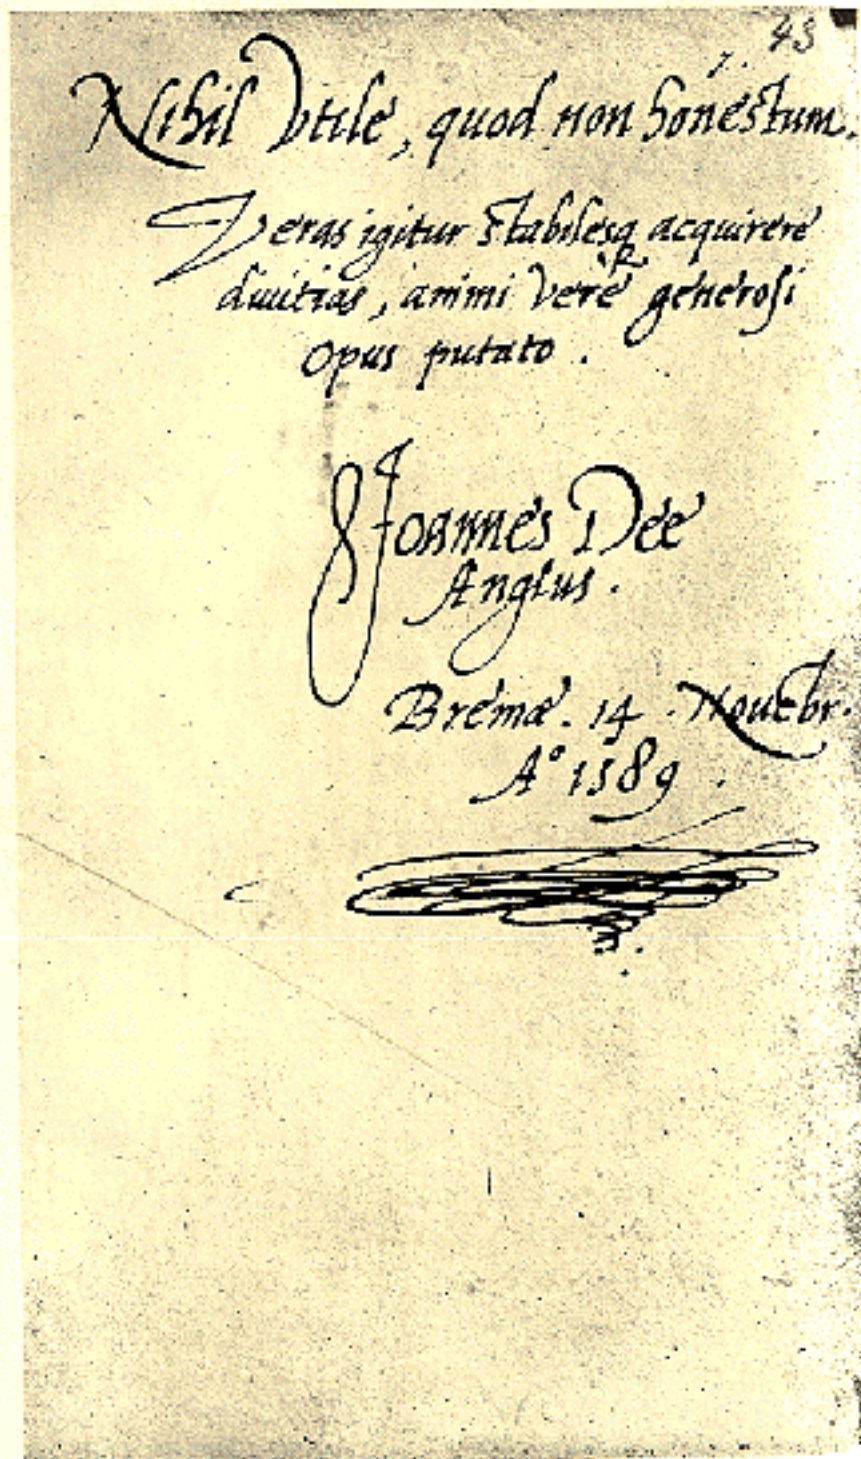 43
Nihil vtile, quod non honestum.
Veras igitur stabilesq acquirere
diuitias, animi verè generosi
opus putato.
Joannes Dee
Anglus.
Bremæ. 14. Nouēbr.
A° 1589.